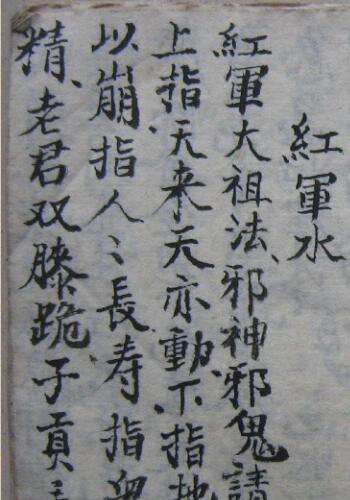 紅軍水
紅軍大祖法、邪神邪鬼請
上指天来天亦動、下指地
以崩、指人〻長寿、指鬼
精、老君双膝跪、子貢